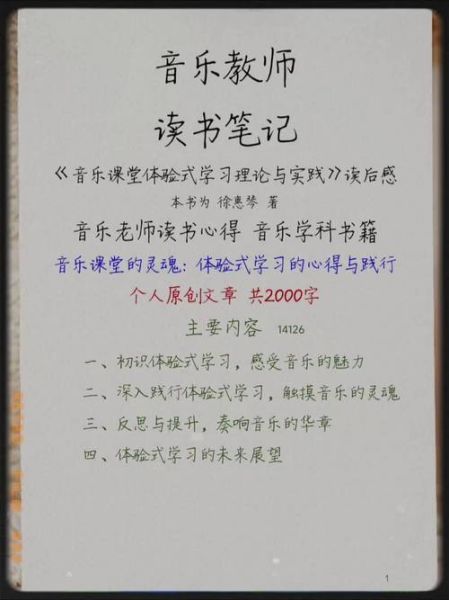 音乐教师
读书笔记
《音乐课堂体验式学习理论与实践》读后感
本书为 徐惠琴 著
音乐老师读书心得 音乐学科书籍
音乐课堂的灵魂：体验式学习的心得与践行
个人原创文章 共2000字
主要内容 14126
一、初识体验式学习，感受音乐的魅力
二、深入践行体验式学习，触摸音乐的灵魂
三、反思与提升，奏响音乐的华章
四、体验式学习的未来展望
1